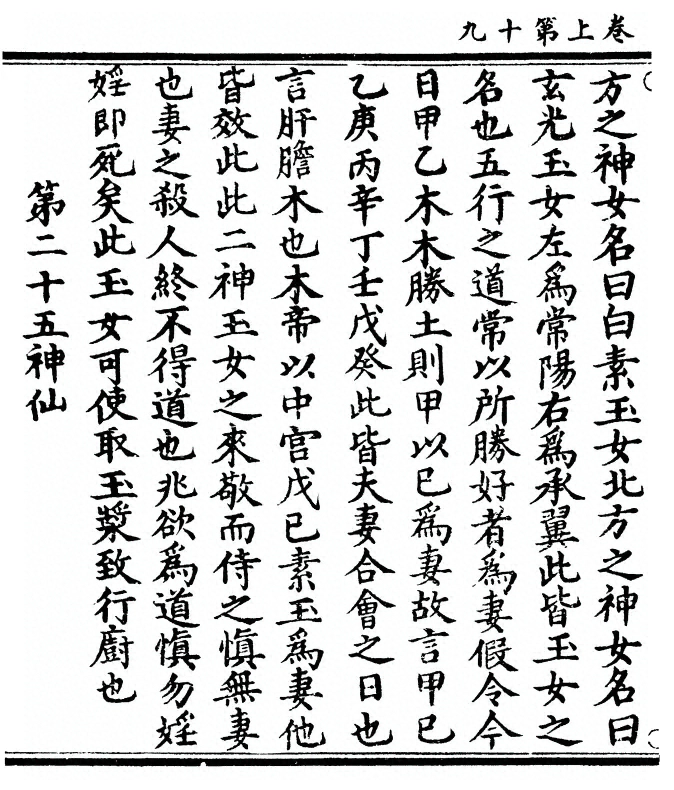 卷上第十九
方之神女名曰白素玉女北方之神女名曰
玄光玉女左爲常陽右爲承翼此皆玉女之
名也五行之道常以所勝好者爲妻假令今
日甲乙木木勝土則甲以己爲妻故言甲己
乙庚丙辛丁壬戊癸此皆夫妻合會之日也
言肝膽木也木帝以中宮戊己素玉爲妻他
皆效此此二神玉女之來敬而侍之慎無妻
也妻之殺人終不得道也兆欲爲道慎勿婬
婬即死矣此玉女可使取玉漿致行廚也
第二十五神仙